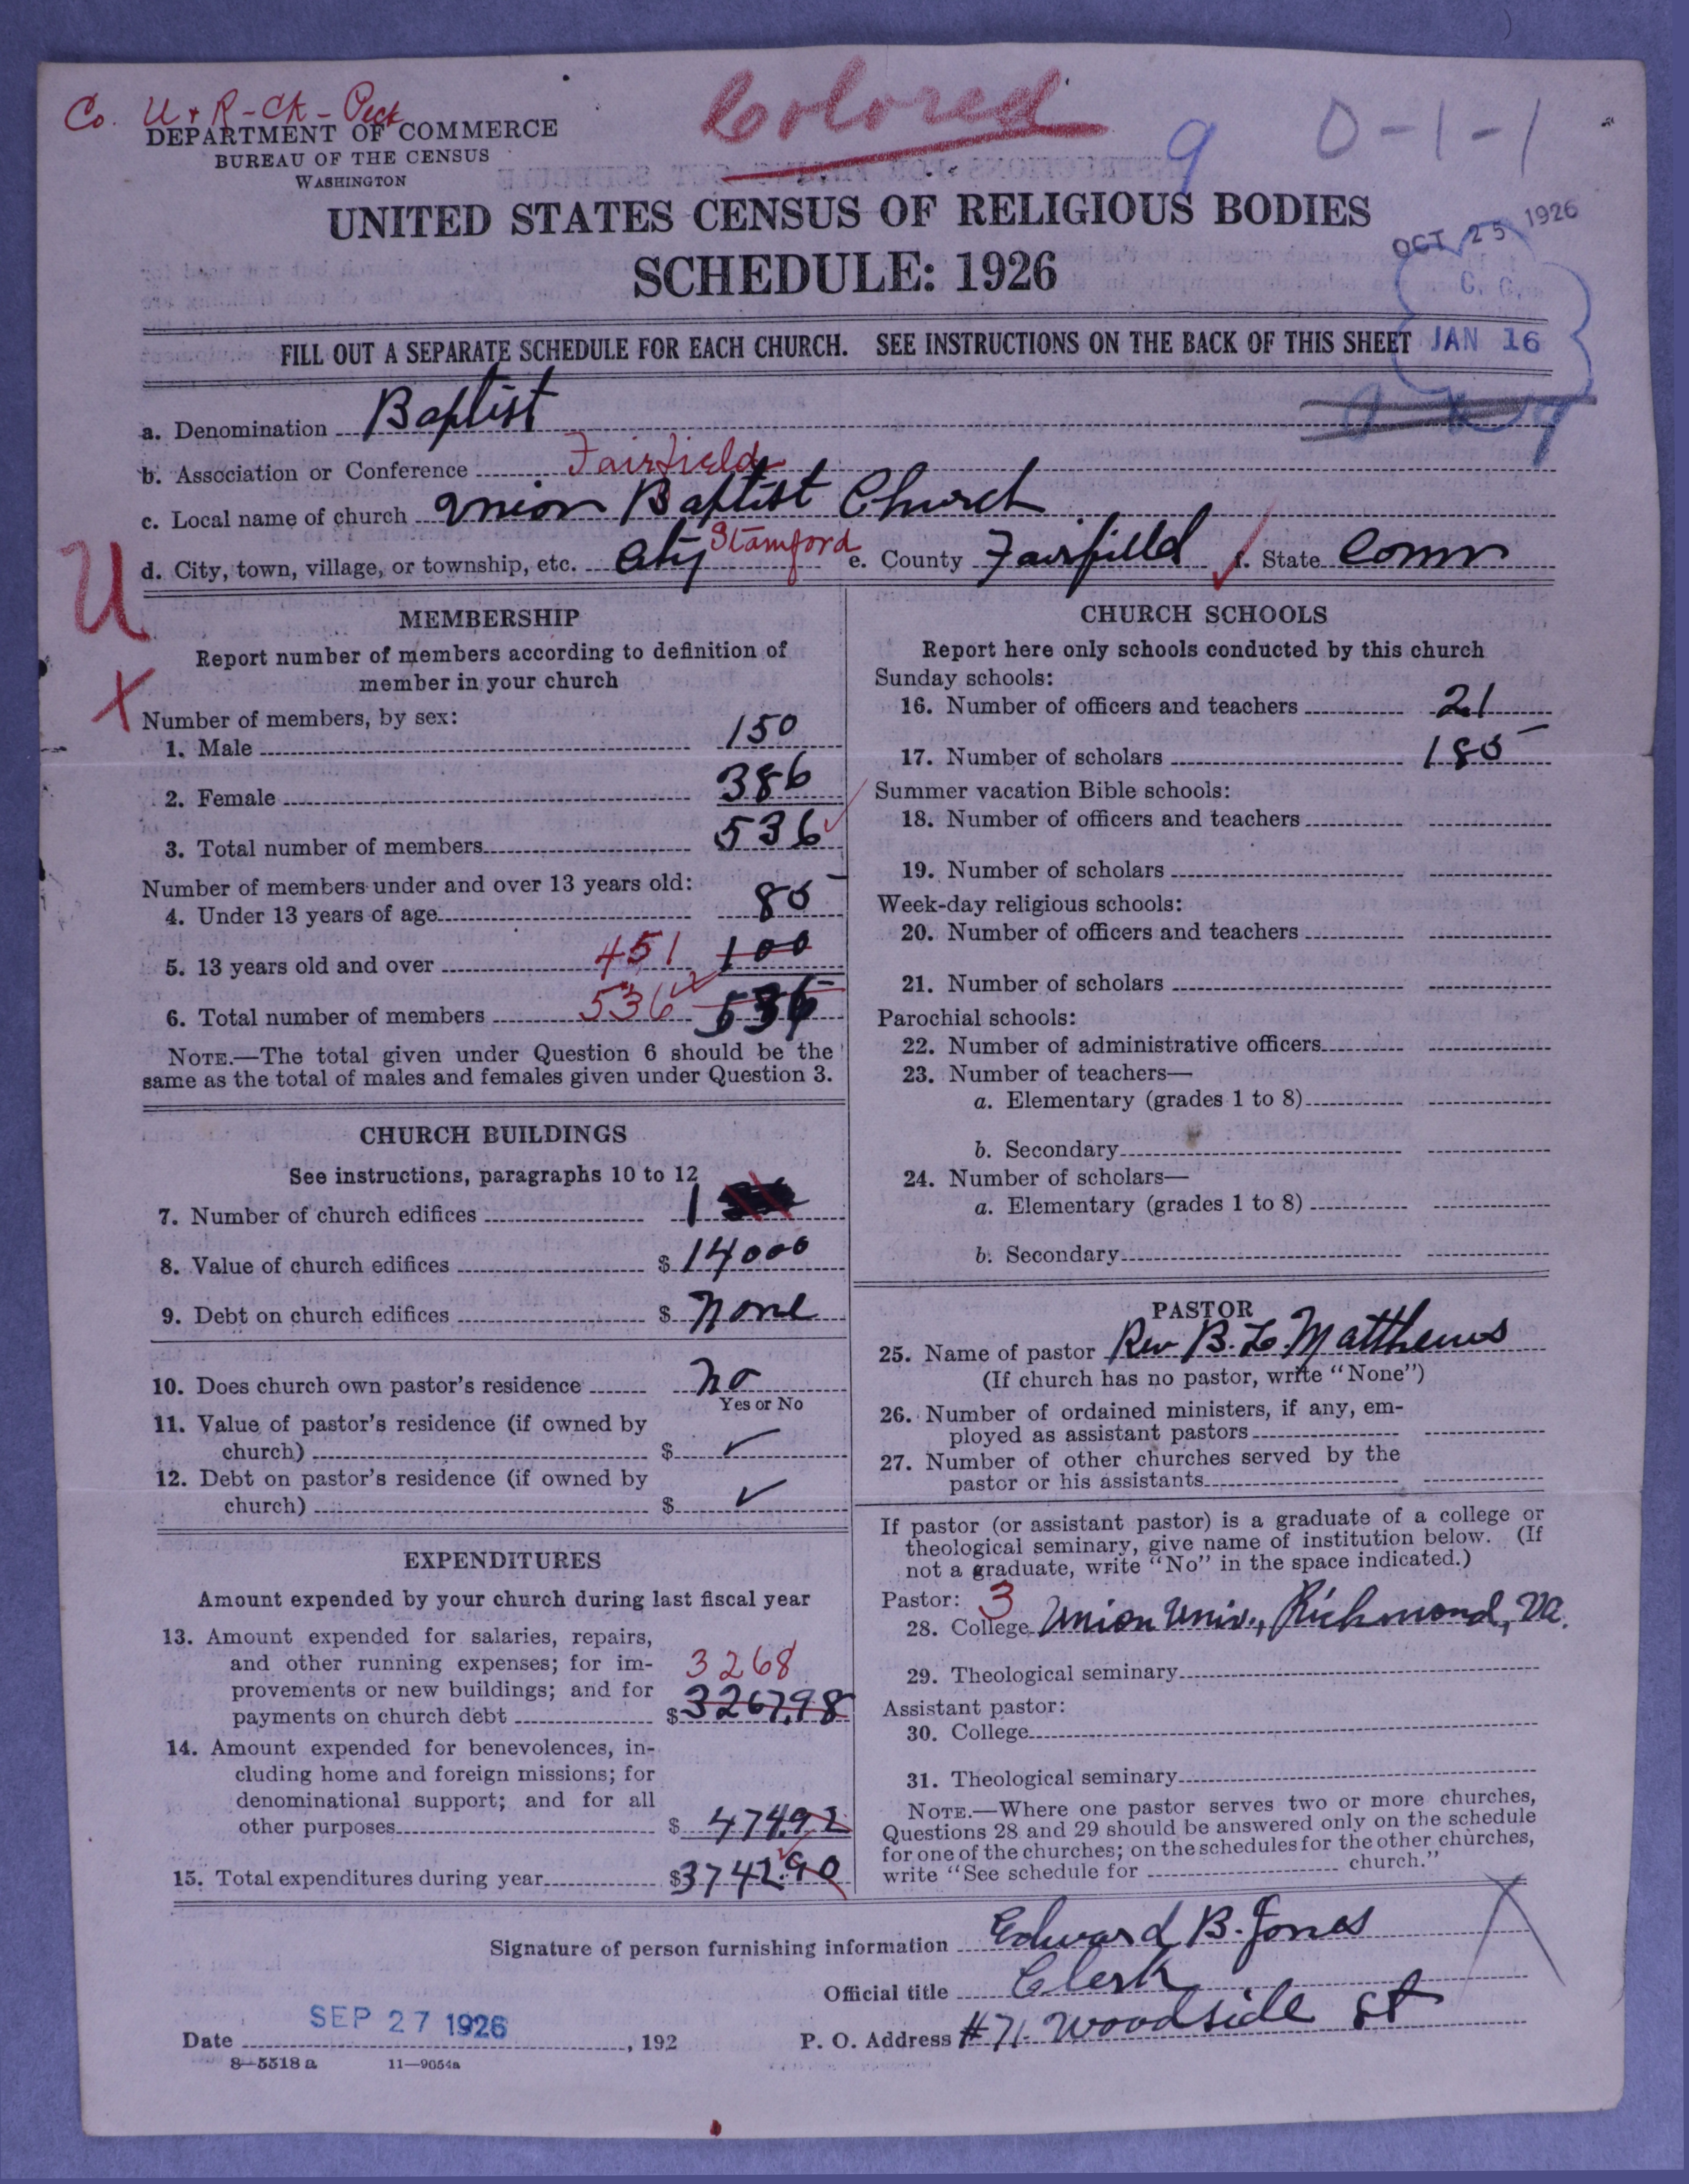 Co. U + R - Ck - Peck
Colored
9 0-1-1
DEPARTMENT OF COMMERCE
BUREAU OF THE CENSUS
WASHINGTON
UNITED STATES CENSUS OF RELIGIOUS BODIES
SCHEDULE: 1926
OCT 25 1926
C. C.
JAN 16
FILL OUT A SEPARATE SCHEDULE FOR EACH CHURCH. SEE INSTRUCTIONS ON THE BACK OF THIS SHEET
a. Denomination Baptist
b. Association or Conference Fairfield
c. Local name of church Union Baptist Church
d. City, town, village, or township, etc. City Stamford e. County Fairfield f. State Conn
U
X
MEMBERSHIP
Report number of members according to definition of
member in your church
Number of members, by sex:
1. Male 150
2. Female 386
3. Total number of members 536
Number of members under and over 13 years old:
4. Under 13 years of age 85
5. 13 years old and over 451 100
6. Total number of members 536 536
NOTE.—The total given under Question 6 should be the
same as the total of males and females given under Question 3.
CHURCH BUILDINGS
See instructions, paragraphs 10 to 12
7. Number of church edifices 1
8. Value of church edifices $ 14000
9. Debt on church edifices $ None
10. Does church own pastor's residence No
Yes or No
11. Value of pastor's residence (if owned by
church) $ ✓
12. Debt on pastor's residence (if owned by
church) $ ✓
EXPENDITURES
Amount expended by your church during last fiscal year
13. Amount expended for salaries, repairs,
and other running expenses; for im-
3268
provements or new buildings; and for
payments on church debt $ 3267.98
14. Amount expended for benevolences, in-
cluding home and foreign missions; for
denominational support; and for all
other purposes $ 474.92
15. Total expenditures during year $3742.90
CHURCH SCHOOLS
Report here only schools conducted by this church
Sunday schools:
16. Number of officers and teachers 21
17. Number of scholars 185
Summer vacation Bible schools:
18. Number of officers and teachers
19. Number of scholars
Week-day religious schools:
20. Number of officers and teachers
21. Number of scholars
Parochial schools:
22. Number of administrative officers
23. Number of teachers—
a. Elementary (grades 1 to 8)
b. Secondary
24. Number of scholars—
a. Elementary (grades 1 to 8)
b. Secondary
PASTOR
25. Name of pastor Rev B. L. Matthews
(If church has no pastor, write "None")
26. Number of ordained ministers, if any, em-
ployed as assistant pastors
27. Number of other churches served by the
pastor or his assistants
If pastor (or assistant pastor) is a graduate of a college or
theological seminary, give name of institution below. (If
not a graduate, write "No" in the space indicated.)
Pastor: 3
28. College Union Univ., Richmond, Va.
29. Theological seminary
Assistant pastor:
30. College
31. Theological seminary
NOTE.—Where one pastor serves two or more churches,
Questions 28 and 29 should be answered only on the schedule
for one of the churches; on the schedules for the other churches,
write "See schedule for church."
Signature of person furnishing information Edward B. Jones
Official title Clerk
Date SEP 27 1926, 192 P. O. Address #71 Woodside St
8—5518 a 11—9054a